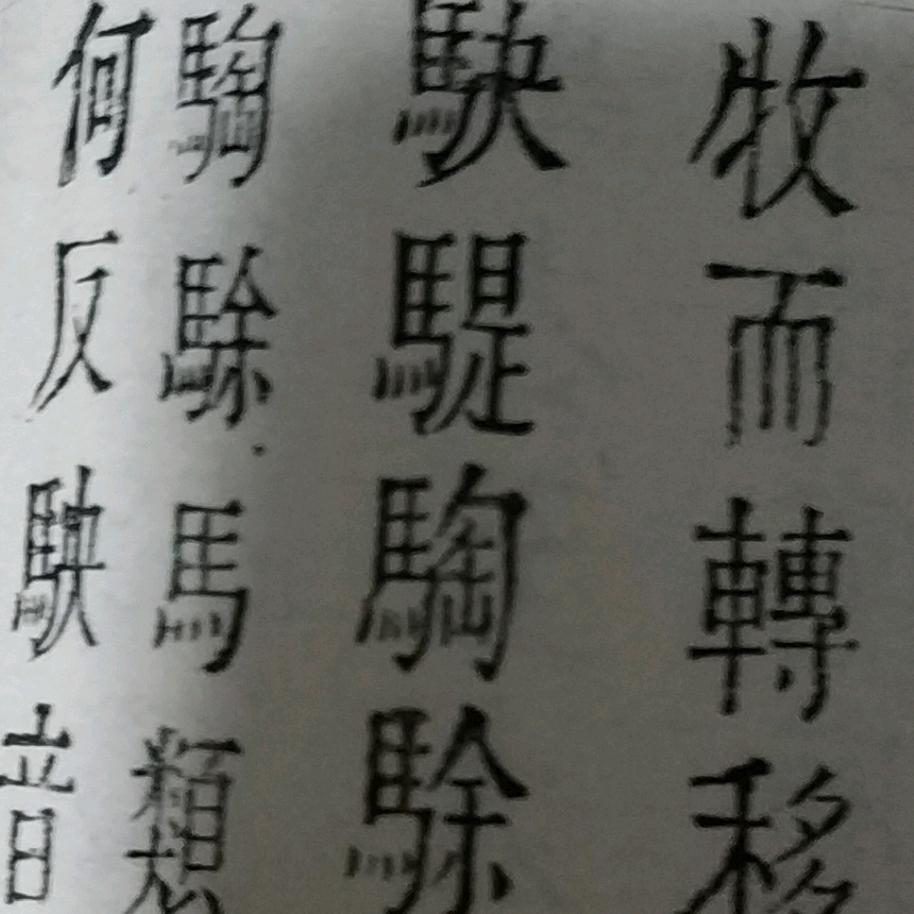 牧而轉移
駃騠騊駼
騊駼馬類
何反駃音